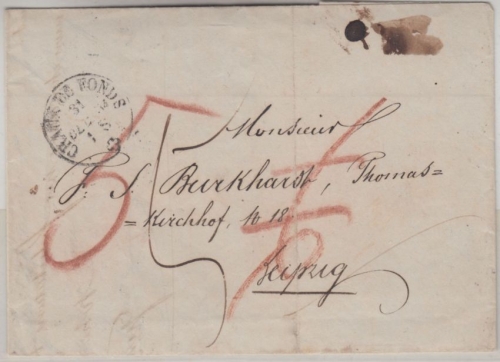 CHAUX DE FONDS
31
Monsieur
F. S. Burkhardt, Thomas=
=Kirchhof, № 18
Leipzig